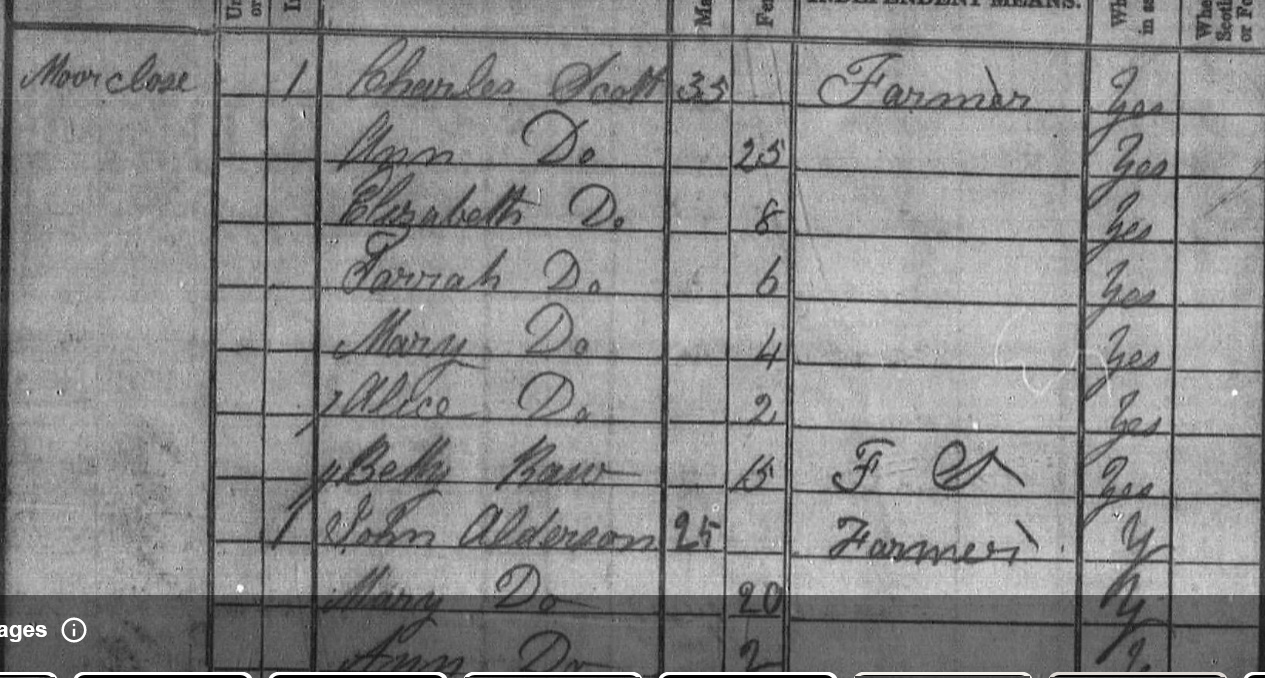 INDEPENDENT MEANS.
Moorclose 1 Charles Scott 35 Farmer Yes
Ann Do 25 Yes
Elizabeth Do 8 Yes
Sarrah Do 6 Yes
Mary Do 4 Yes
Alice Do 2 Yes
Betty Raw 15 F S Yes
1 John Alderson 25 Farmer Y
Mary Do 20 Y
ages
Ann Do 2 Y